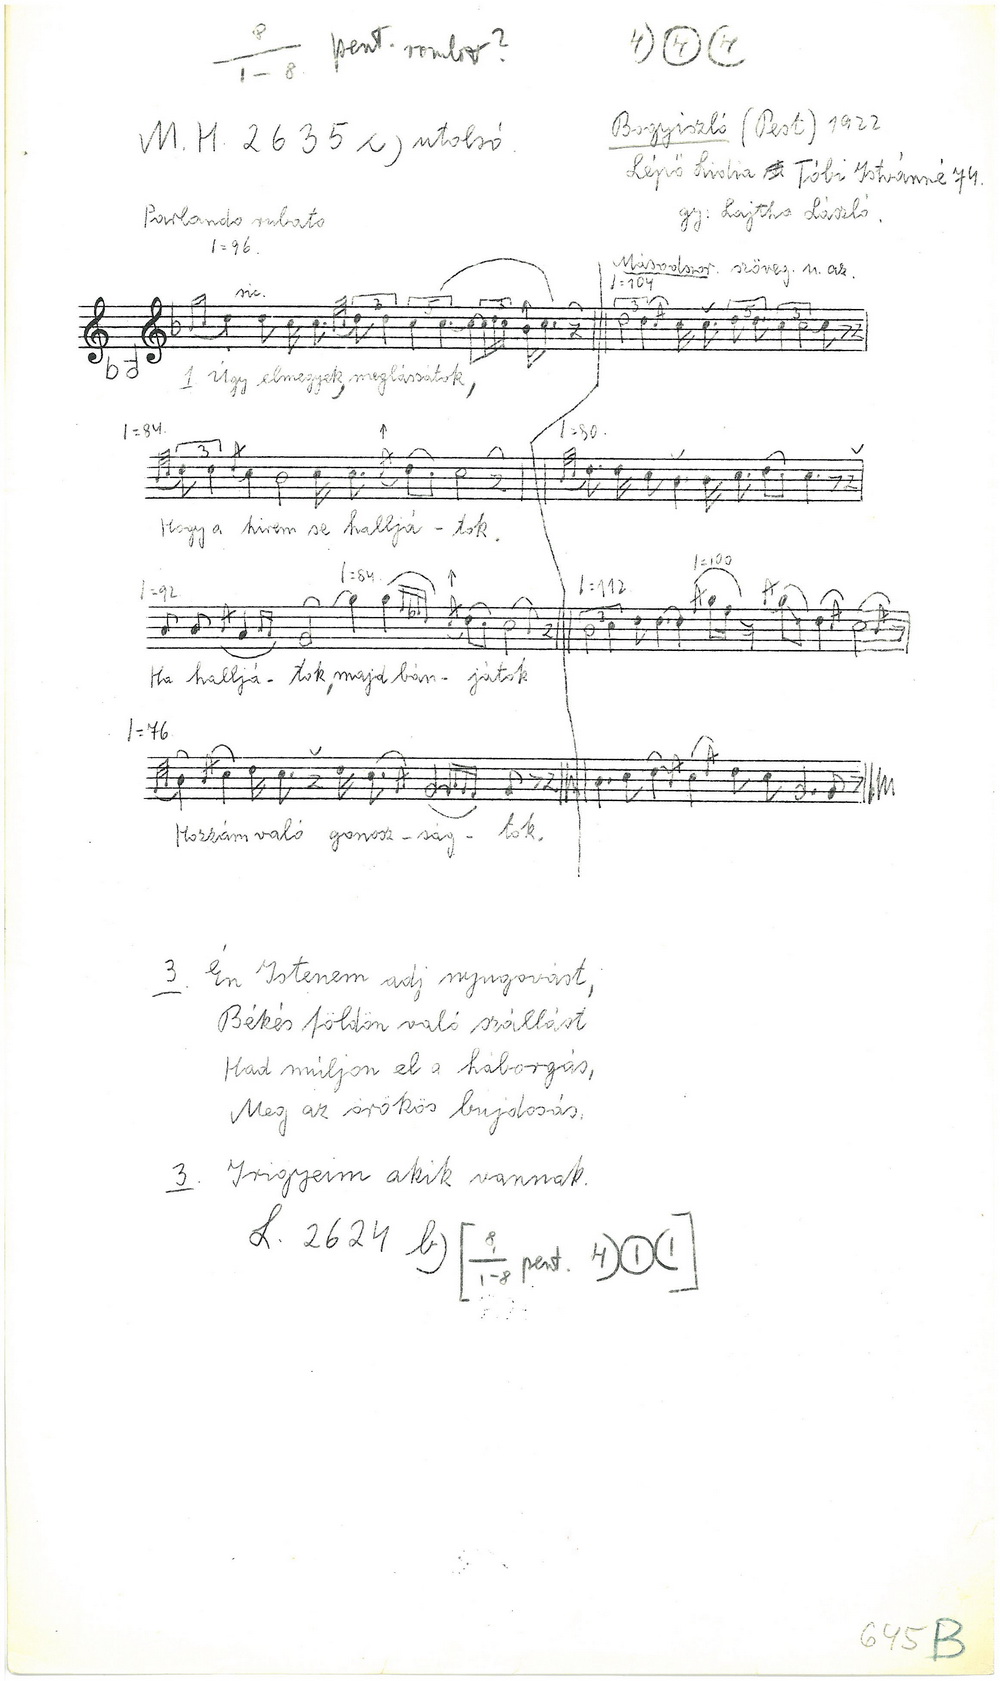 8
1-8 pent. romlot? 4) ④ (4
M. H. 2635 c) utolsó.
Bogyiszló (Pest) 1922
Lépő Lidia Tóbi Istvánné 74.
gy: Lajtha László.
Parlando rubato
=96.
sic.
Másodszor. szöveg. u. az.
=104
3 3 5
1 Úgy elmegyek, meglássátok,
=84.
=80.
3
Hogy a hirem se halljá - tok.
=92
=84.
=112
=100
3
Ha halljá - tok, majd bán - játok
=76
Hozzám való gonosz - ság - tok.
3. Én Istenem adj nyugovást,
Békés földön való szállást
Had múljon el a háborgás,
Meg az örökös bujdosás.
3. Irigyeim akik vannak.
L. 2624 b) [8 1-8 pent. 4) ① (1]
645 B